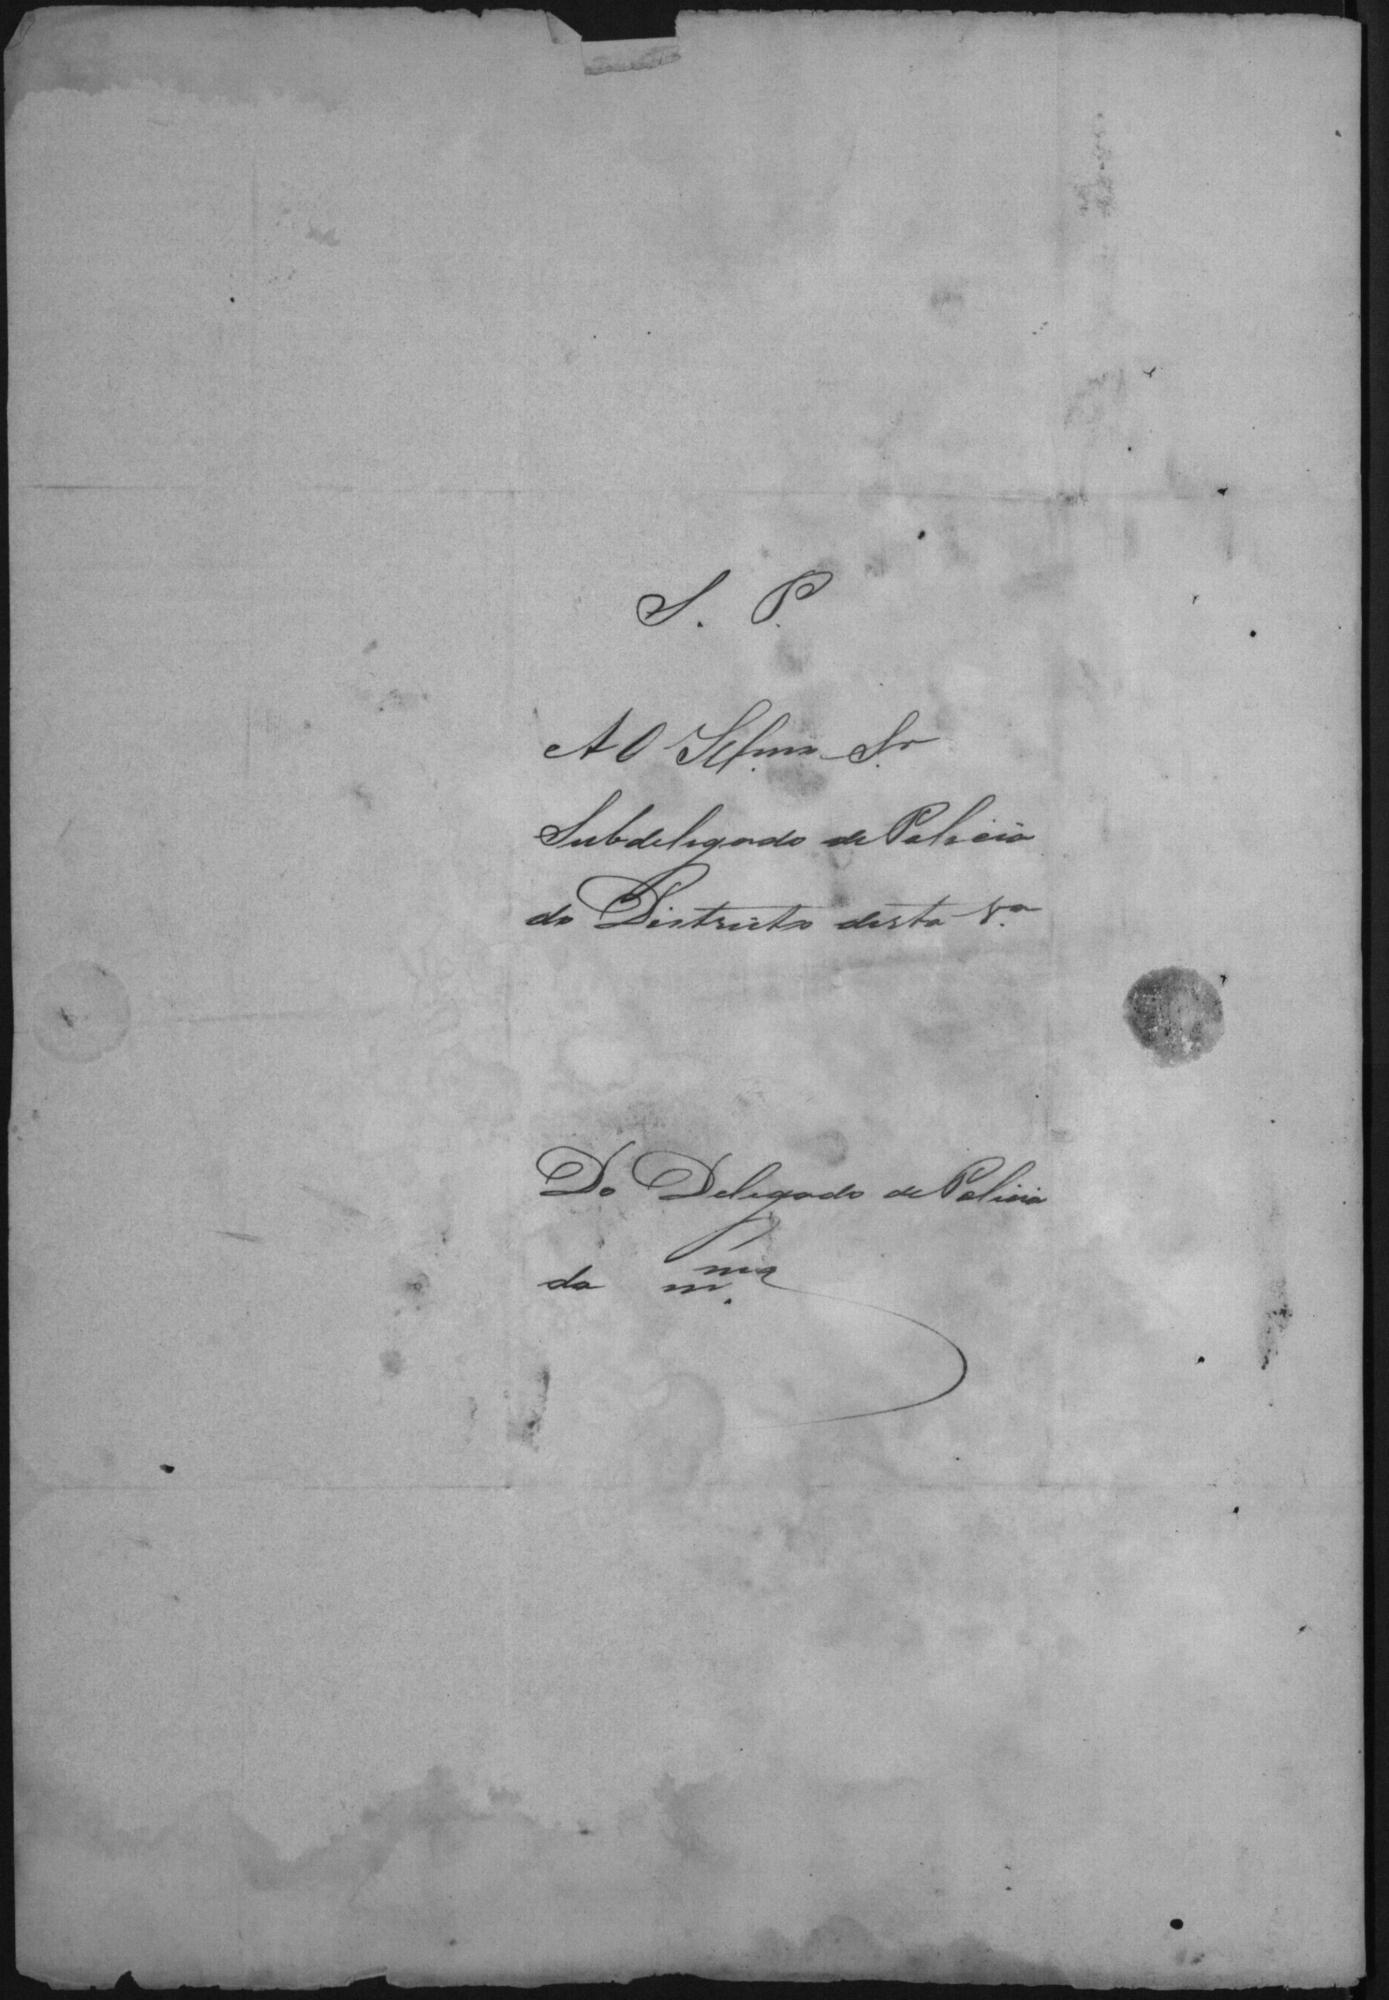 S. P.
Ao Illmo Sr
Subdelegado de Policia
do Districto desta Va
Do Delegado de Policia
da mma